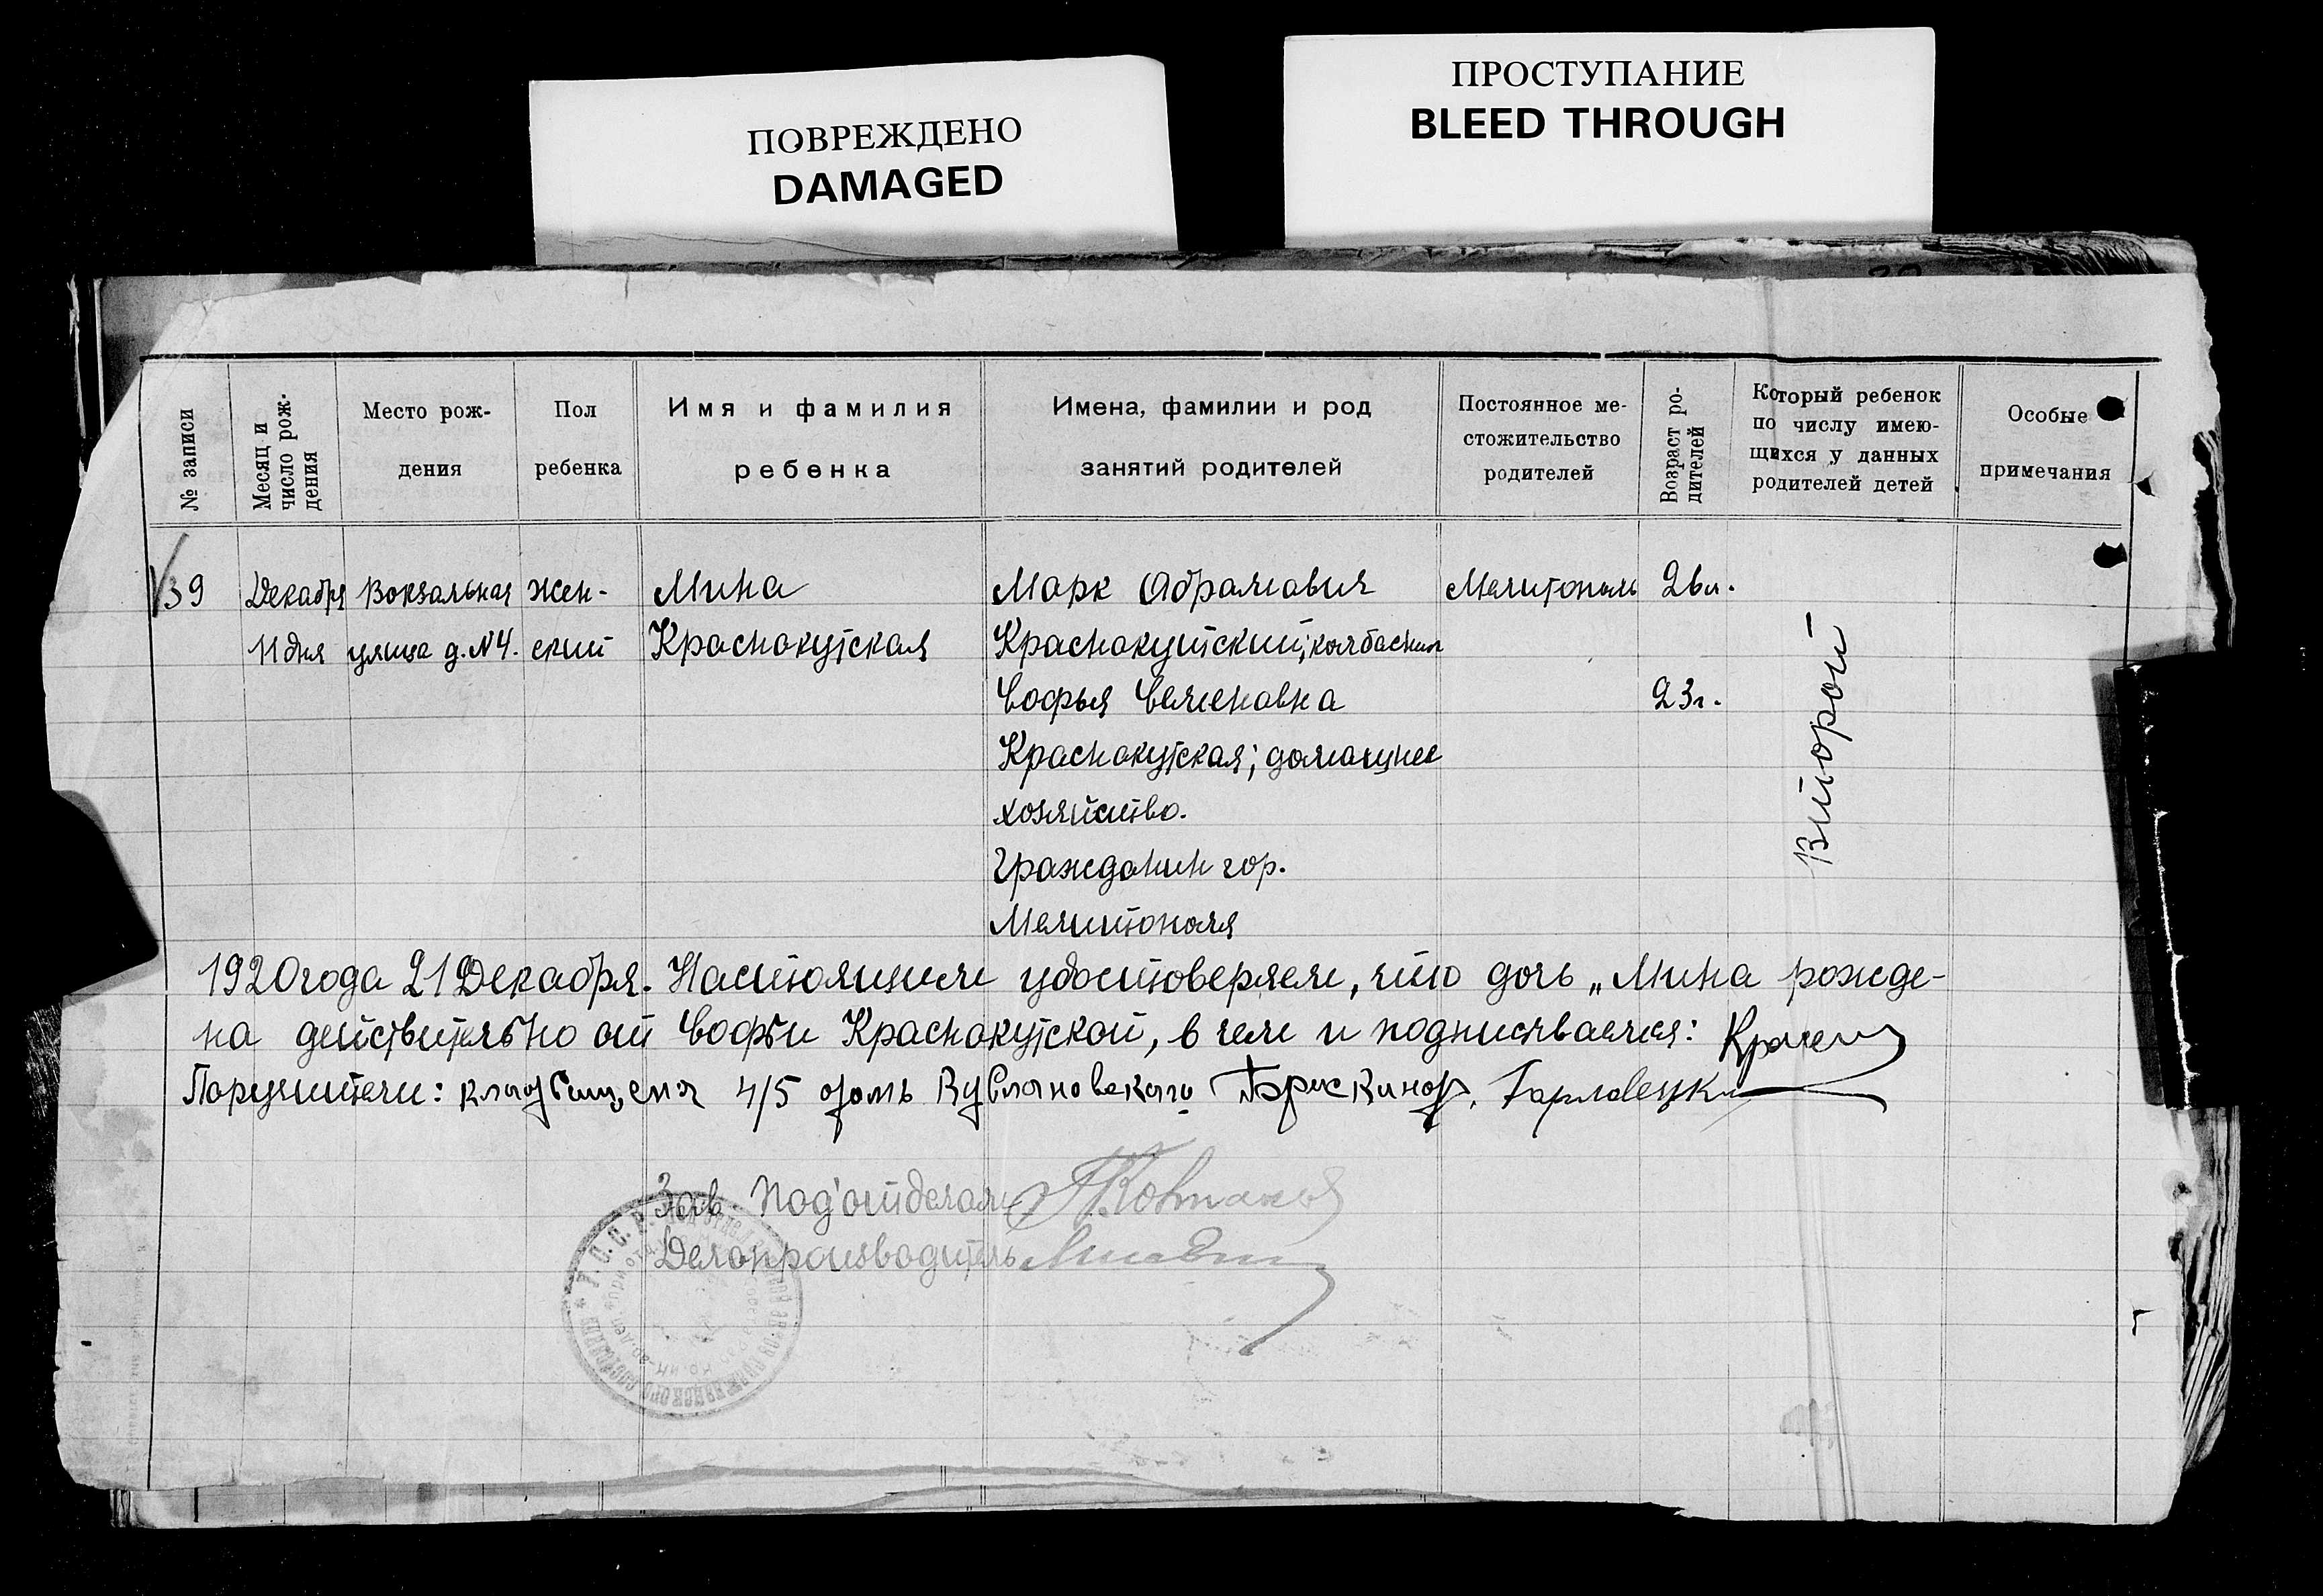 ПОВРЕЖДЕНО
DAMAGED
ПРОСТУПАНИЕ
BLEED THROUGH
№ записи
Месяц и
число рож-
дения
Место рож-
дения
Пол
ребенка
Имя и фамилия
ребенка
Имена, фамилии и род
занятий родителей
Постоянное ме-
стожительство
родителей
Возраст ро-
дителей
Который ребенок
по числу имею-
щихся у данных
родителей детей
Особые
примечания
39 Декабря Вокзальная Жен- Мина Марк Абрамович Мелитополь 26л.
11 дня улица д. №4. ский Краснокутская Краснокутский; колбасник
Софья Семеновна 23г.
Краснокутская; домашнее
хозяйство.
Гражданин гор.
Мелитополя
Второй
1920 года 21 Декабря. Настоящим удостоверяем, что дочь „Мина рожде-
на действительно от Софьи Краснокутской, в чем и подписываемся:
Поручители: 4/5
Зав. Под'отделом
Делопроизводитель